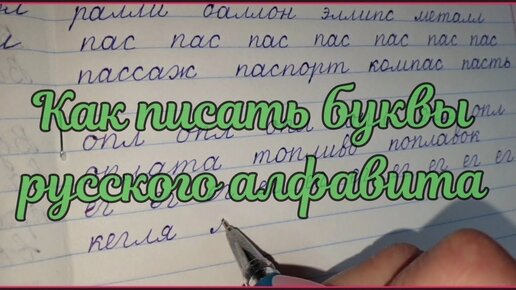 ралли баллон эллипс металл
пас пас пас пас пас пас пас
пассаж паспорт компас пасть
Как писать буквы
опл опл опл опл
оплата топливо поплавок
русского алфавита
ег ег ег ег ег ег
кегля